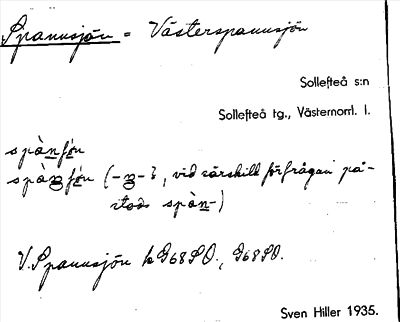 Spannsjön = Västerspannsjön
Sollefteå s:n
Sollefteå tg., Västernorrl. l.
spànʃón
spàn̰ʃón (-n̰- ?, vid särskild förfrågan på-
stods spàn-)
V. Spannsjön k G68SO., G68SO.
Sven Hiller 1935.